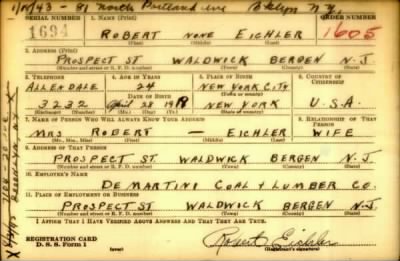 1/11/43 - 81 North Portland ave Bklyn N.Y.
SERIAL NUMBER 1. NAME (Print) ORDER NUMBER
1694 ROBERT NONE EICHLER 1605
(First) (Middle) (Last)
2. ADDRESS (Print)
PROSPECT ST. WALDWICK BERGEN N.J.
(Number and street or R. F. D. number) (Town) (County) (State)
3. TELEPHONE 4. AGE IN YEARS 5. PLACE OF BIRTH 6. COUNTRY OF CITIZENSHIP
ALLENDALE 24 NEW YORK CITY
(Exchange) DATE OF BIRTH (Town or county)
3232 April 28 1918 NEW YORK U.S.A.
(Number) (Mo.) (Day) (Yr.) (State or country)
7. NAME OF PERSON WHO WILL ALWAYS KNOW YOUR ADDRESS 8. RELATIONSHIP OF THAT PERSON
MRS ROBERT — EICHLER WIFE
(Mr., Mrs., Miss) (First) (Middle) (Last)
9. ADDRESS OF THAT PERSON
PROSPECT ST. WALDWICK BERGEN N.J.
(Number and street or R. F. D. number) (Town) (County) (State)
10. EMPLOYER'S NAME
DE MARTINI COAL & LUMBER CO.
11. PLACE OF EMPLOYMENT OR BUSINESS
PROSPECT ST WALDWICK BERGEN N.J.
(Number and street or R. F. D. number) (Town) (County) (State)
I AFFIRM THAT I HAVE VERIFIED ABOVE ANSWERS AND THAT THEY ARE TRUE.
REGISTRATION CARD
D. S. S. Form 1 (over) Robert Eichler
(Registrant's signature)